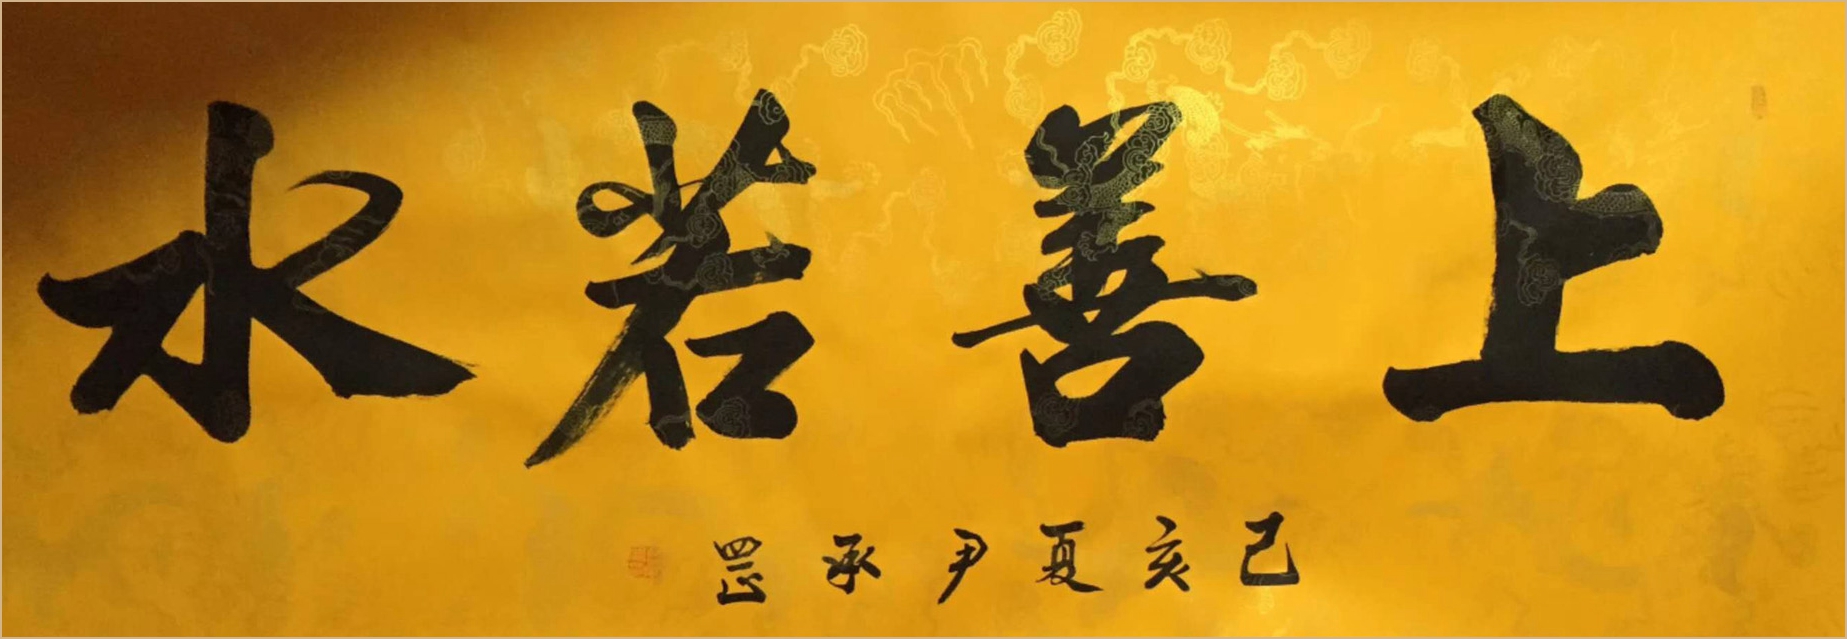 上善若水
己亥夏尹承罡